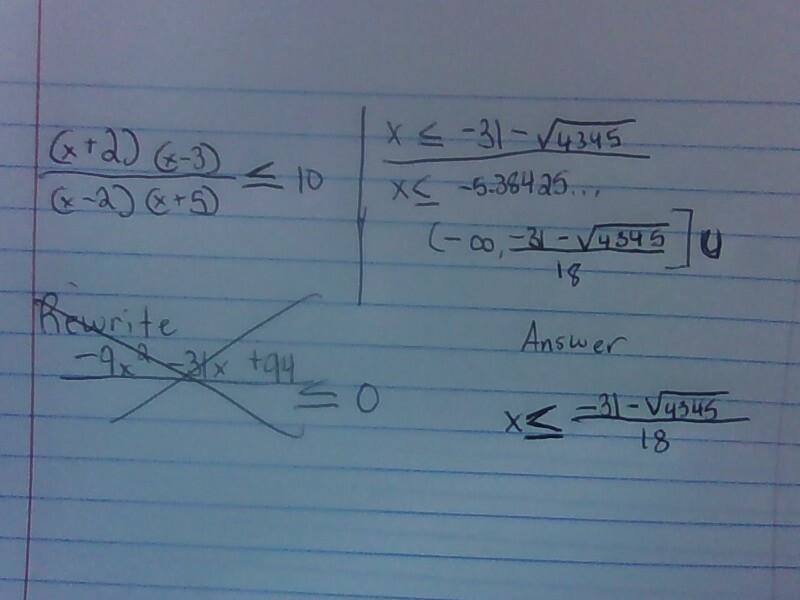 (x+2)(x-3)
(x-2)(x+5) ≤ 10
Rewrite
-9x² -31x +94 ≤ 0
x ≤ -31-√4345
x ≤ -5.38425...
(-∞, -31-√4345
18 ] U
Answer
x ≤ -31-√4345
18